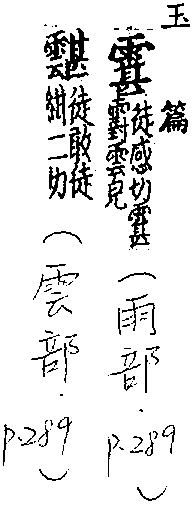 玉篇
霮徒感切霮
䨴雲皃
(雨部.p.289)
徒敢徒
紺二切
(雲部.p.289)